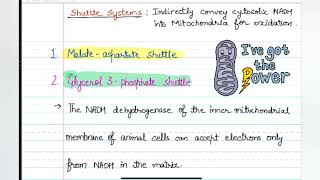 Shuttle Systems : Indirectly convey cytosolic NADH
into Mitochondria for oxidation.
1. Malate-aspartate shuttle
2. Glycerol 3-phosphate shuttle
I've got
the
Power
→ The NADH dehydrogenase of the inner mitochondrial
membrane of animal cells can accept electrons only
from NADH in the matrix.